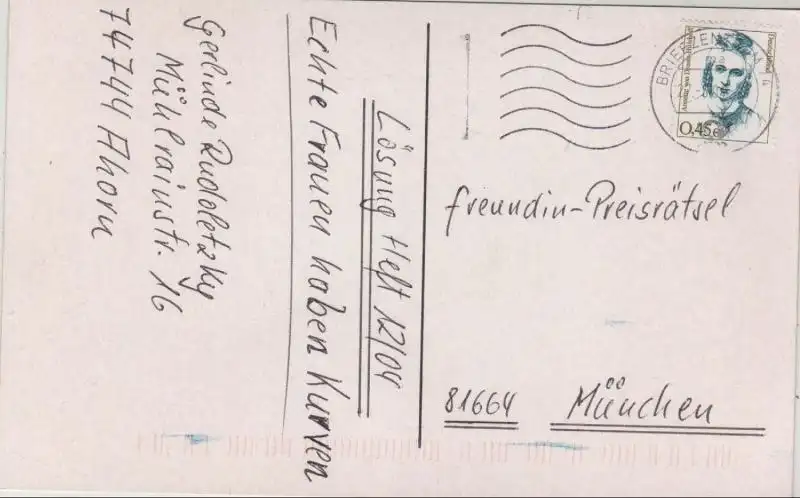 Gerlinde Rudoletzky
Mühlrainstr. 16
74744 Ahorn
Lösung Heft 12/04
Echte Frauen haben Kurven
freundin-Preisrätsel
81664 München
0,45€